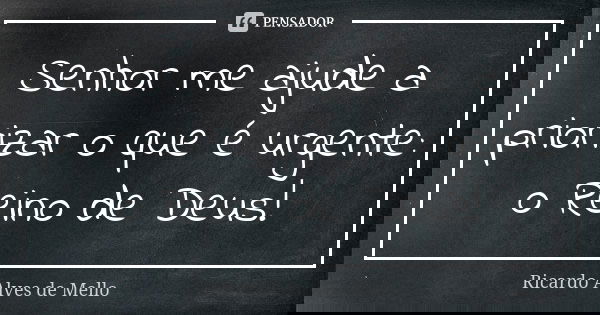 PENSADOR
Senhor me ajude a
priorizar o que é urgente:
o Reino de Deus!
Ricardo Alves de Mello